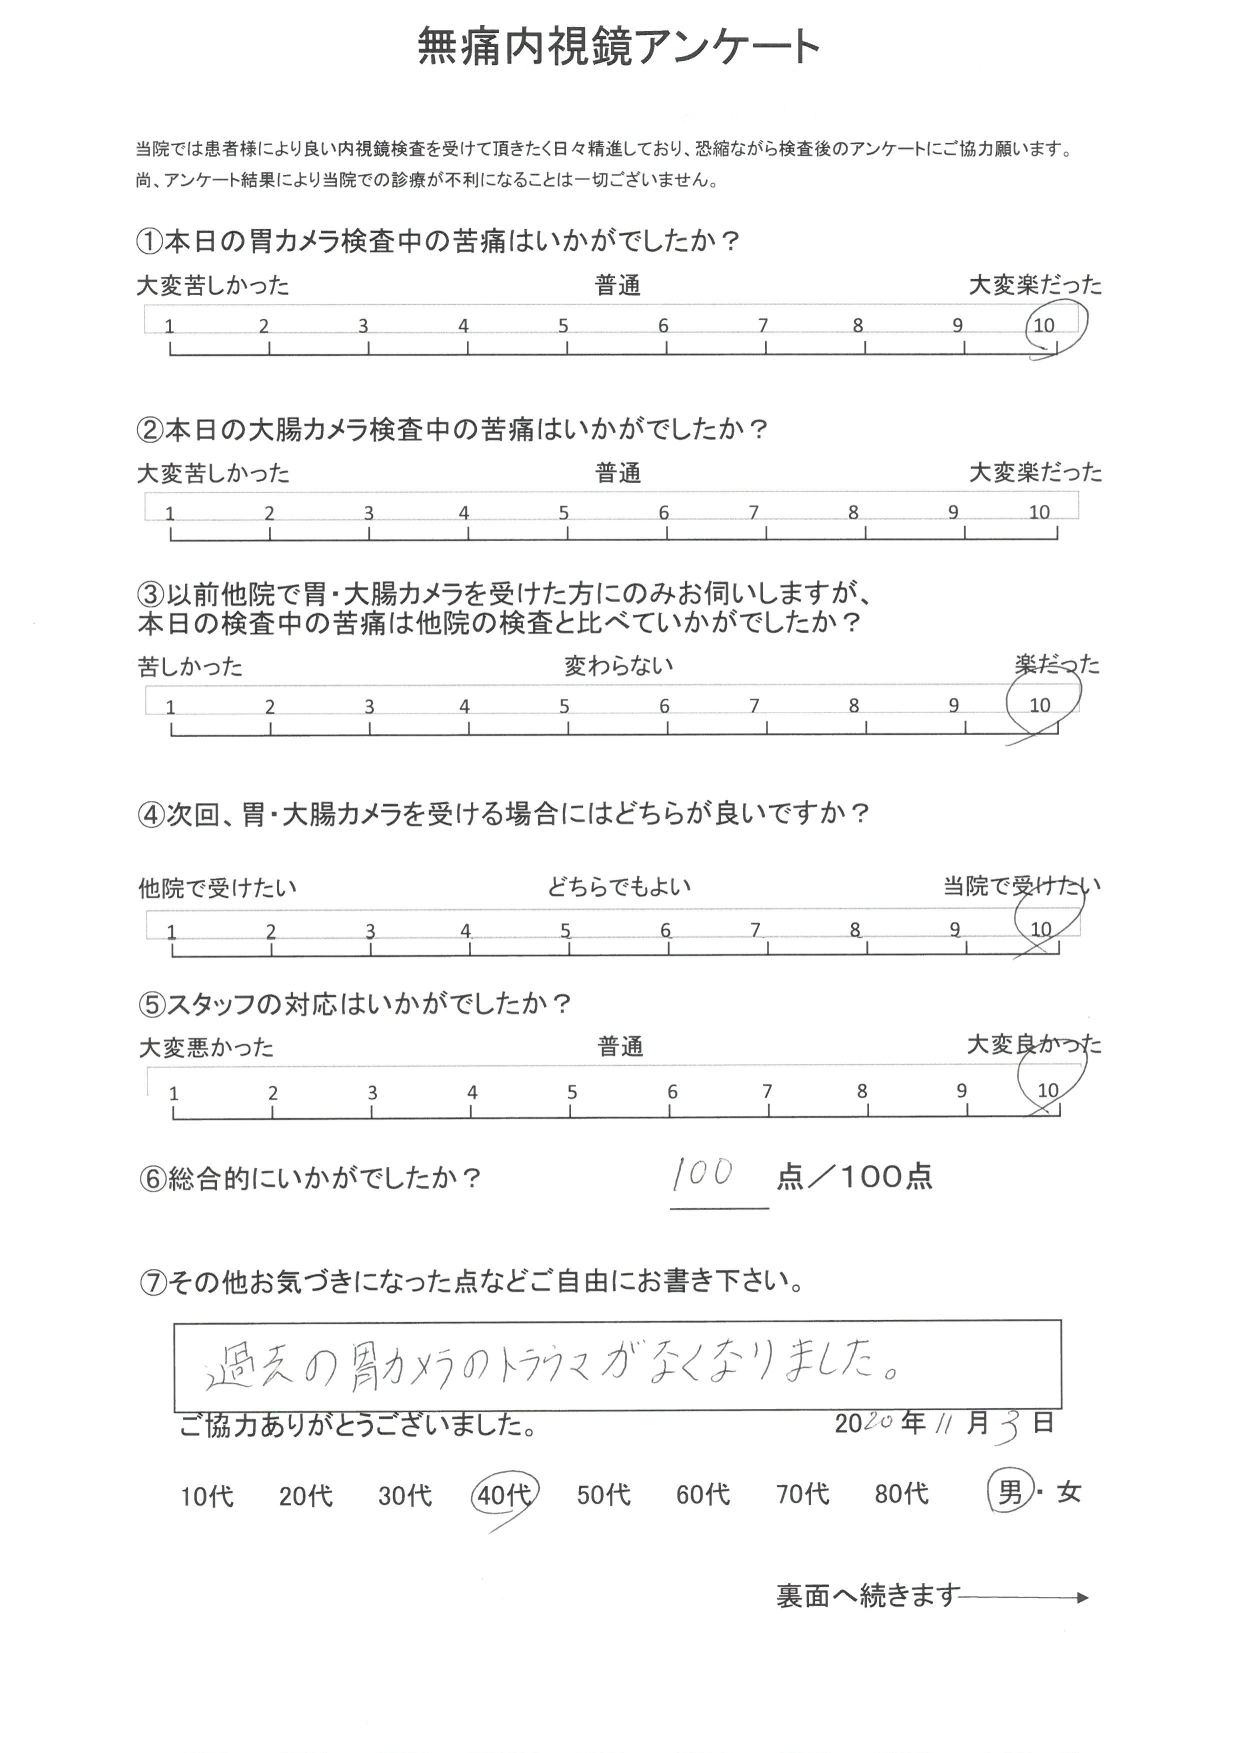 無痛内視鏡アンケート
当院では患者様により良い内視鏡検査を受けて頂きたく日々精進しており、恐縮ながら検査後のアンケートにご協力願います。
尚、アンケート結果により当院での診療が不利になることは一切ございません。
①本日の胃カメラ検査中の苦痛はいかがでしたか？
大変苦しかった 普通 大変楽だった
1 2 3 4 5 6 7 8 9 10
②本日の大腸カメラ検査中の苦痛はいかがでしたか？
大変苦しかった 普通 大変楽だった
1 2 3 4 5 6 7 8 9 10
③以前他院で胃・大腸カメラを受けた方にのみお伺いしますが、
本日の検査中の苦痛は他院の検査と比べていかがでしたか？
苦しかった 変わらない 楽だった
1 2 3 4 5 6 7 8 9 10
④次回、胃・大腸カメラを受ける場合にはどちらが良いですか？
他院で受けたい どちらでもよい 当院で受けたい
1 2 3 4 5 6 7 8 9 10
⑤スタッフの対応はいかがでしたか？
大変悪かった 普通 大変良かった
1 2 3 4 5 6 7 8 9 10
⑥総合的にいかがでしたか？ 100 点／100点
⑦その他お気づきになった点などご自由にお書き下さい。
過去の胃カメラのトラウマがなくなりました。
ご協力ありがとうございました。 2020年11月3日
10代 20代 30代 40代 50代 60代 70代 80代 男・女
裏面へ続きます